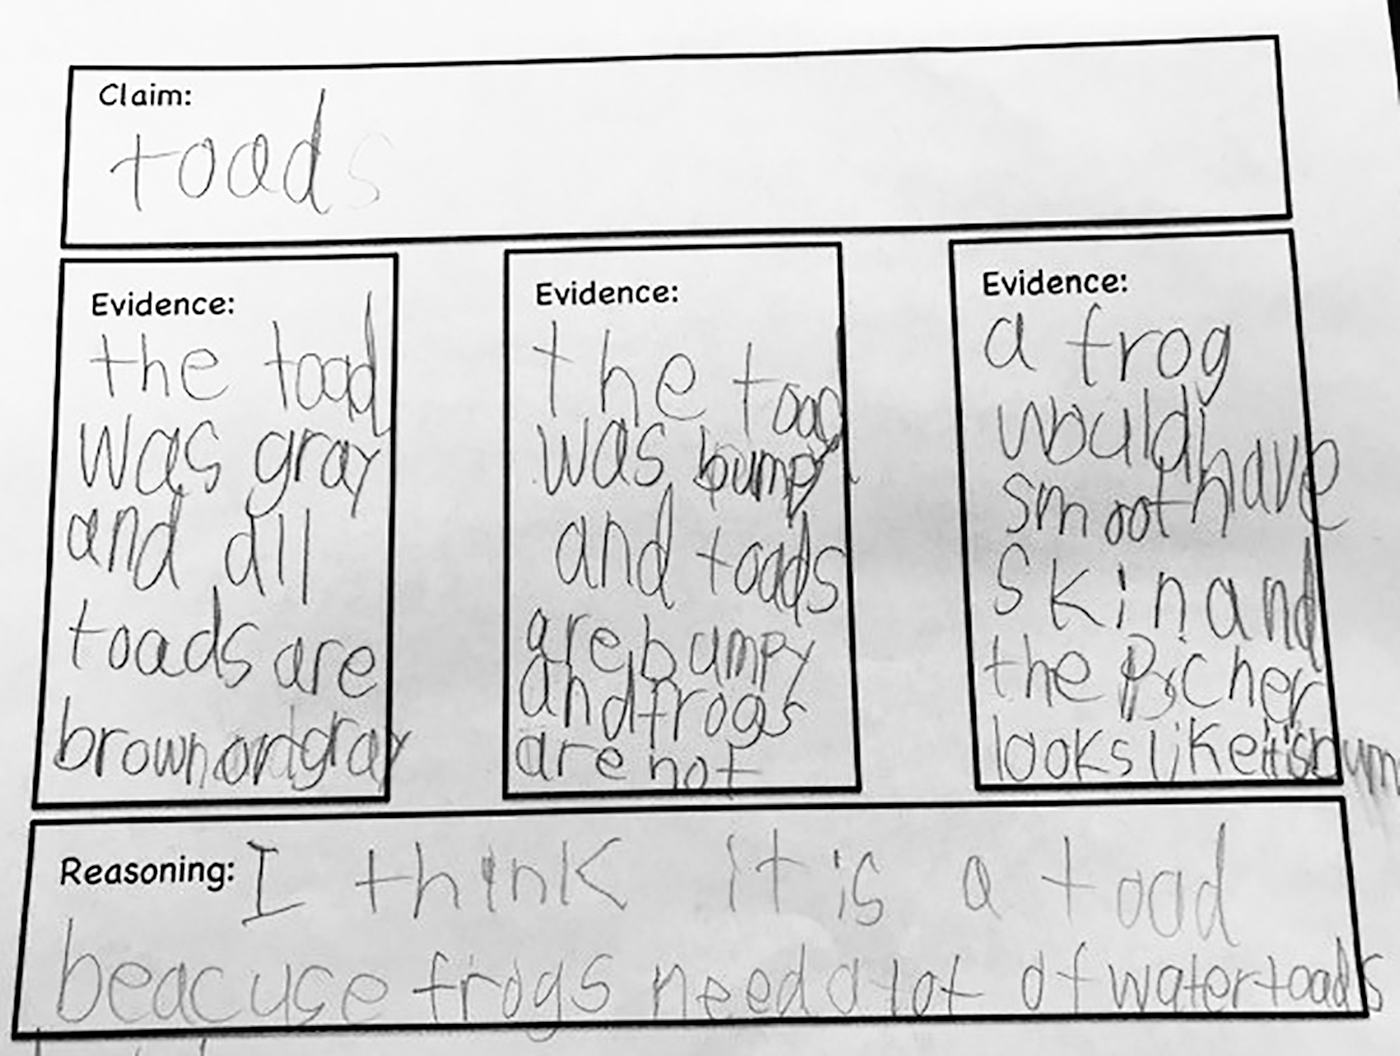 Claim:
toads
Evidence:
the toad
was gray
and all
toads are
brown or gray
Evidence:
the toad
was bumpy
and toads
are bumpy
and frogs
are not
Evidence:
a frog
would have
smooth
skin and
the Picher
looks like it's bum
Reasoning: I think it is a toad
beacuse frogs need a lot of water toads